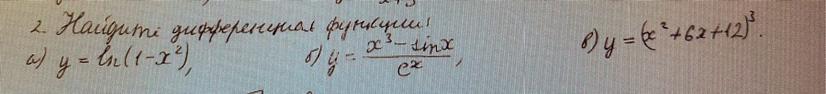 2. Найдите дифференциал функции:
а) y = ln(1-x²), б) y = (x³ - sinx)/eˣ, в) y = (x² + 6x + 12)³.